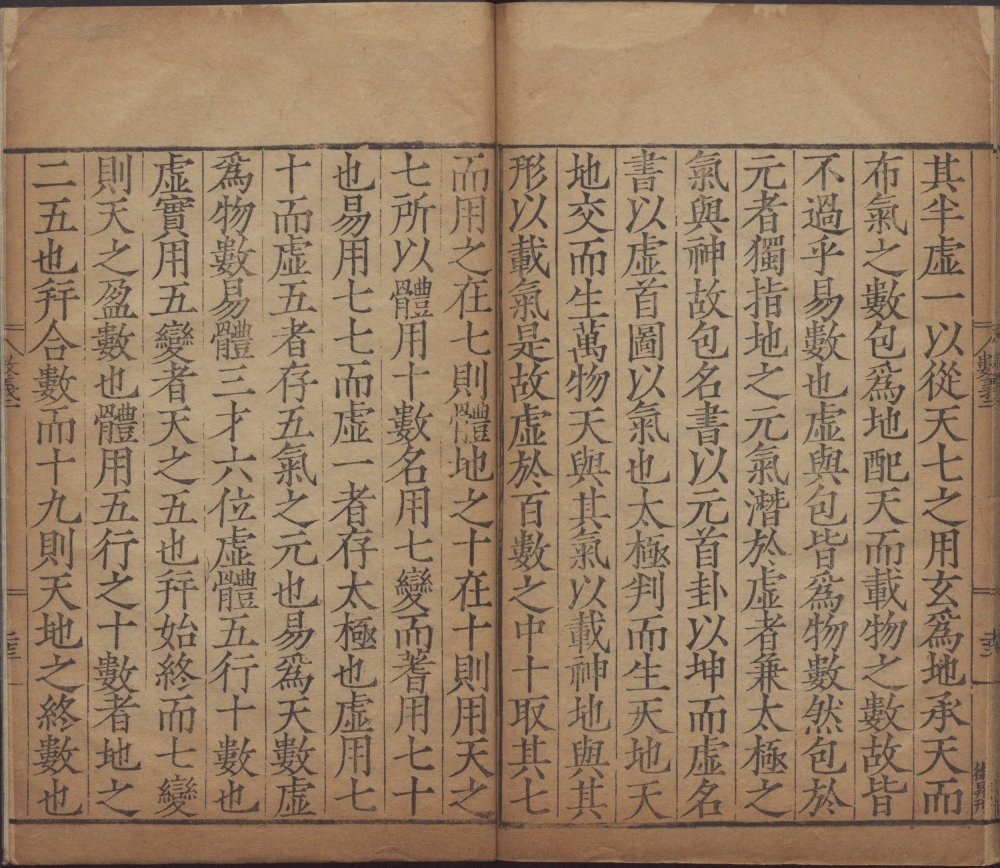 其半虛一以從天七之用玄爲地承天而
布氣之數包爲地配天而載物之數故皆
不過乎易數也虛與包皆爲物數然包於
元者獨指地之元氣潛於虛者兼太極之
氣與神故包名書以元首卦以坤而虛名
書以虛首圖以氣也太極判而生天地天
地交而生萬物天與其氣以載神地與其
形以載氣是故虛於百數之中十取其七
而用之在七則體地之十在十則用天之
七所以體用十數名用七變而蓍用七十
也易用七七而虛一者存太極也虛用七
十而虛五者存五氣之元也易爲天數虛
爲物數易體三才六位虛體五行十數也
虛實用五變者天之五也幷始終而七變
則天之盈數也體用五行之十數者地之
二五也幷合數而十九則天地之終數也